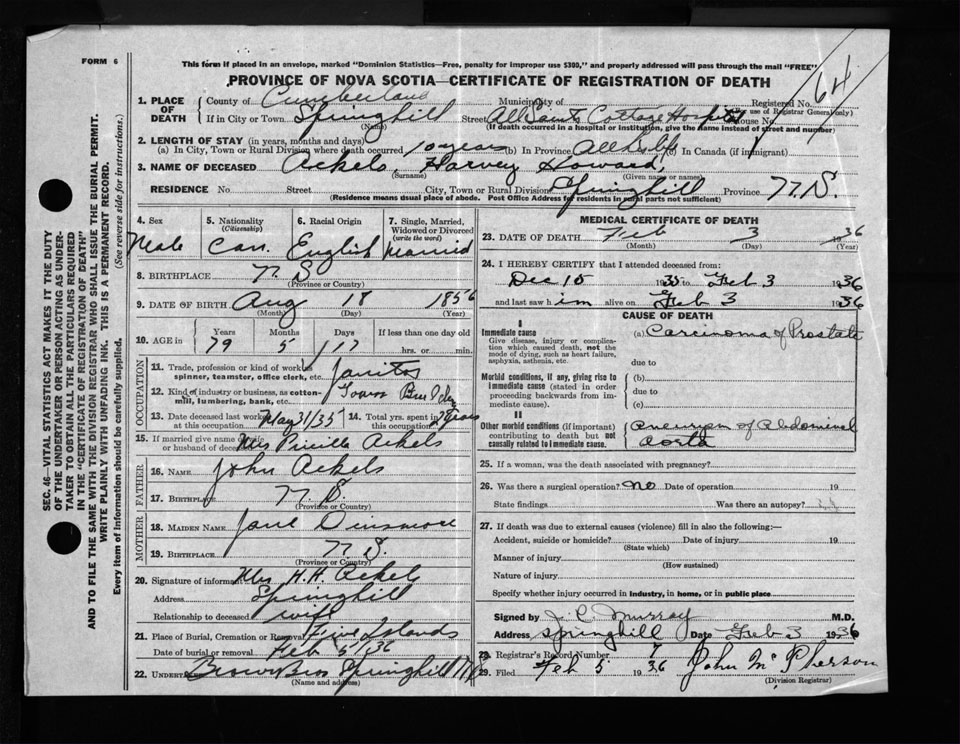 FORM 6
This form if placed in an envelope, marked "Dominion Statistics—Free, penalty for improper use $300," and properly addressed will pass through the mail "FREE"
PROVINCE OF NOVA SCOTIA—CERTIFICATE OF REGISTRATION OF DEATH
64
1. PLACE OF DEATH { County of Cumberland Municipality of Registered No.
(For use of Registrar General only)
If in City or Town Springhill Street All Saints Cottage Hospital House No.
(Name) (If death occurred in a hospital or institution, give the name instead of street and number)
2. LENGTH OF STAY (in years, months and days)
(a) In City, Town or Rural Division where death occurred 10 years (b) In Province All his life (c) In Canada (if immigrant)
3. NAME OF DECEASED Ackels, Harvey Howard
(Surname) (Given name or names)
RESIDENCE No Street City, Town or Rural Division Springhill Province N.S.
(Residence means usual place of abode. Post Office Address for residents in rural parts not sufficient)
SEC. 46—VITAL STATISTICS ACT MAKES IT THE DUTY
OF THE UNDERTAKER OR PERSON ACTING AS UNDER-
TAKER TO OBTAIN ALL THE PARTICULARS REQUIRED
IN THE "CERTIFICATE OF REGISTRATION OF DEATH"
AND TO FILE THE SAME WITH THE DIVISION REGISTRAR WHO SHALL ISSUE THE BURIAL PERMIT.
WRITE PLAINLY WITH UNFADING INK. THIS IS A PERMANENT RECORD.
Every item of information should be carefully supplied. (See reverse side for instructions.)
4. Sex 5. Nationality (Citizenship) 6. Racial Origin 7. Single, Married, Widowed or Divorced (write the word)
Male Can. English Married
8. BIRTHPLACE N S
(Province or Country)
9. DATE OF BIRTH Aug 18 1856
(Month) (Day) (Year)
10. AGE in { Years Months Days If less than one day old
79 5 17 hrs. or min.
OCCUPATION
11. Trade, profession or kind of work as spinner, teamster, office clerk, etc. Janitor
12. Kind of industry or business, as cotton-mill, lumbering, bank, etc. Town Building
13. Date deceased last worked at this occupation May 31/35 14. Total yrs. spent in this occupation years
15. If married give name of wife or husband of deceased Mrs Ackels
FATHER
16. NAME John Ackels
17. BIRTHPLACE N. S.
(Province or Country)
MOTHER
18. MAIDEN NAME Jane Dinsmore
19. BIRTHPLACE N. S.
(Province or Country)
20. Signature of informant Mrs H. H. Ackels
Address Springhill
Relationship to deceased wife
21. Place of Burial, Cremation or Removal Five Islands
Date of burial or removal Feb 5/36
22. UNDERTAKER Brown Bros Springhill N.S.
(Name and address)
MEDICAL CERTIFICATE OF DEATH
23. DATE OF DEATH Feb 3 1936
(Month) (Day) (Year)
24. I HEREBY CERTIFY that I attended deceased from:
Dec 15 1935 to Feb 3 1936
and last saw him alive on Feb 3 1936
CAUSE OF DEATH
I
Immediate cause (a) Carcinoma of Prostate
Give disease, injury or complica-
tion which caused death, not the
mode of dying, such as heart failure,
asphyxia, asthenia, etc.
due to
Morbid conditions, if any, giving rise to
immediate cause (stated in order
proceeding backwards from im-
mediate cause).
(b)
due to
(c)
II
Other morbid conditions (if important)
contributing to death but not
causally related to immediate cause.
Aneurysm of Abdominal
Aorta
25. If a woman, was the death associated with pregnancy?
26. Was there a surgical operation? No Date of operation 19
State findings Was there an autopsy?
27. If death was due to external causes (violence) fill in also the following:—
Accident, suicide or homicide? Date of injury 19
(State which)
Manner of injury
(How sustained)
Nature of injury
Specify whether injury occurred in industry, in home, or in public place
Signed by J. C. Murray M.D.
Address Springhill Date Feb 3 1936
28. Registrar's Record Number 7
29. Filed Feb 5 1936 John McPherson
(Division Registrar)